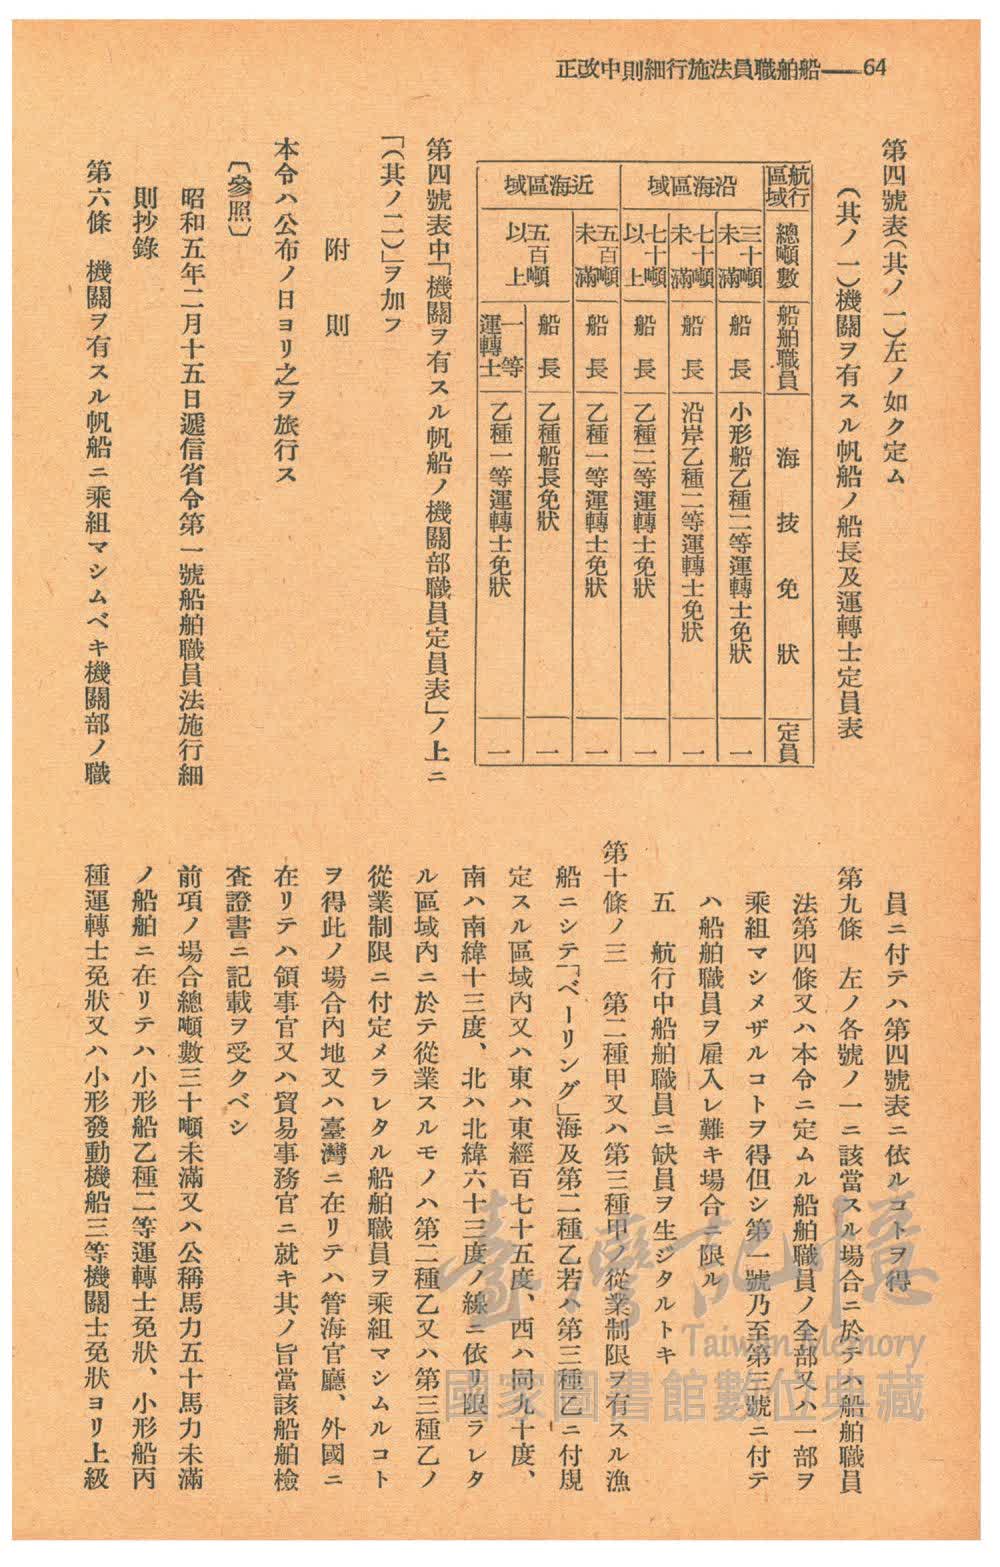 船舶職員法施行細則中改正——64
第四號表(其ノ一)左ノ如ク定ム
(其ノ一)機關ヲ有スル帆船ノ船長及運轉士定員表
航行區域 總噸數 船舶職員 海技免狀 定員
沿海區域 三十噸未滿 船長 小形船乙種二等運轉士免狀 一
七十噸未滿 船長 沿岸乙種二等運轉士免狀 一
七十噸以上 船長 乙種二等運轉士免狀 一
近海區域 五百噸未滿 船長 乙種一等運轉士免狀 一
五百噸以上 船長 乙種船長免狀 一
一等運轉士 乙種一等運轉士免狀 一
第四號表中「機關ヲ有スル帆船ノ機關部職員定員表」ノ上ニ
「(其ノ二)」ヲ加フ
附則
本令ハ公布ノ日ヨリ之ヲ旅行ス
〔參照〕
昭和五年二月十五日遞信省令第一號船舶職員法施行細
則抄錄
第六條 機關ヲ有スル帆船ニ乘組マシムベキ機關部ノ職
員ニ付テハ第四號表ニ依ルコトヲ得
第九條 左ノ各號ノ一ニ該當スル場合ニ於テハ船舶職員
法第四條又ハ本令ニ定ムル船舶職員ノ全部又ハ一部ヲ
乘組マシメザルコトヲ得但シ第一號乃至第三號ニ付テ
ハ船舶職員ヲ雇入レ難キ場合ニ限ル
五 航行中船舶職員ニ缺員ヲ生ジタルトキ
第十條ノ三 第二種甲又ハ第三種甲ノ從業制限ヲ有スル漁
船ニシテ「ベーリング」海及第二種乙若ハ第三種乙ニ付規
定スル區域內又ハ東ハ東經百七十五度、西ハ同九十度、
南ハ南緯十三度、北ハ北緯六十三度ノ線ニ依リ限ラレタ
ル區域內ニ於テ從業スルモノハ第二種乙又ハ第三種乙ノ
從業制限ニ付定メラレタル船舶職員ヲ乘組マシムルコト
ヲ得此ノ場合內地又ハ臺灣ニ在リテハ管海官廳、外國ニ
在リテハ領事官又ハ貿易事務官ニ就キ其ノ旨當該船舶檢
査證書ニ記載ヲ受クベシ
前項ノ場合總噸數三十噸未滿又ハ公稱馬力五十馬力未滿
ノ船舶ニ在リテハ小形船乙種二等運轉士免狀、小形船丙
種運轉士免狀又ハ小形發動機船三等機關士免狀ヨリ上級
臺灣記憶
Taiwan Memory
國家圖書館數位典藏